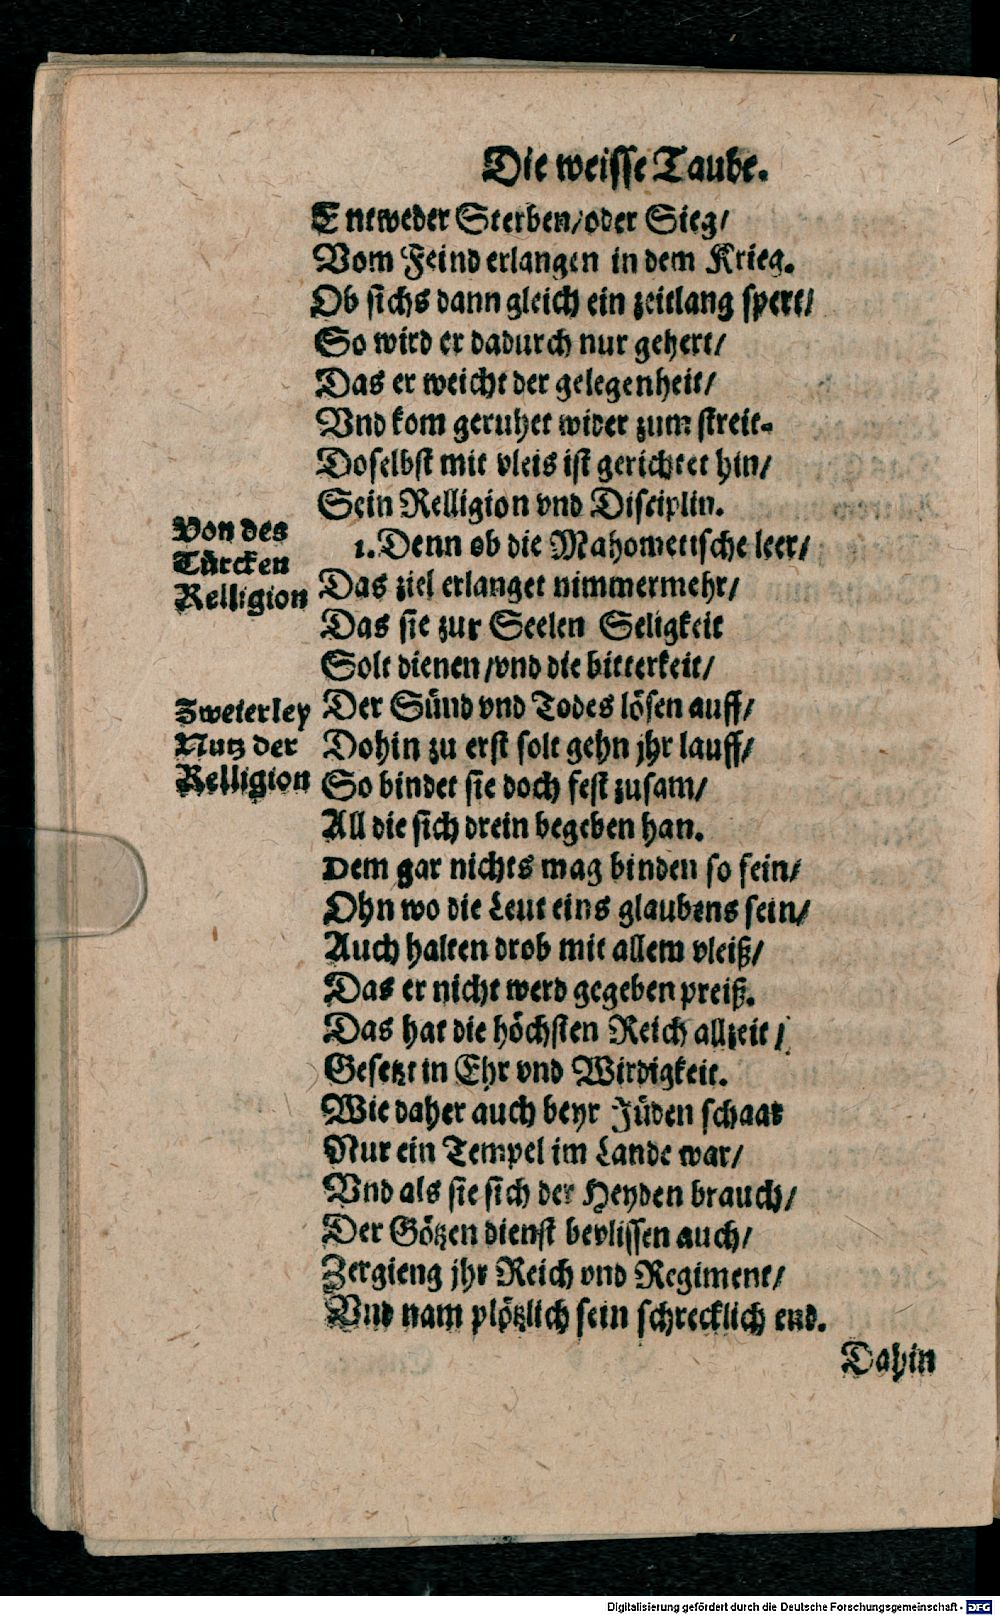 Die weisse Taube.
Entweder Sterben/oder Sieg/
Vom Feind erlangen in dem Krieg.
Ob sichs dann gleich ein zeitlang spert/
So wird er dadurch nur gehert/
Das er weicht der gelegenheit/
Vnd kom geruhet wider zum streit.
Doselbst mit vleis ist gerichtet hin/
Sein Relligion vnd Disciplin.
Von des
Türcken
Relligion
1. Denn ob die Mahometische leer/
Das ziel erlanget nimmermehr/
Das sie zur Seelen Seligkeit
Solt dienen/vnd die bitterkeit/
Zweierley
Nutz der
Relligion
Der Sünd vnd Todes lösen auff/
Dohin zu erst solt gehn jhr lauff/
So bindet sie doch fest zusam/
All die sich drein begeben han.
Dem gar nichts mag binden so fein/
Ohn wo die Leut eins glaubens sein/
Auch halten drob mit allem vleiß/
Das er nicht werd gegeben preiß.
Das hat die höchsten Reich allzeit/
Gesetzt in Ehr vnd Wirdigkeit.
Wie daher auch beyr Jüden schaar
Nur ein Tempel im Lande war/
Vnd als sie sich der Heyden brauch/
Der Götzen dienst bevlissen auch/
Zergieng jhr Reich vnd Regiment/
Vnd nam plötzlich sein schrecklich end.
Dahin
Digitalisierung gefördert durch die Deutsche Forschungsgemeinschaft - DFG